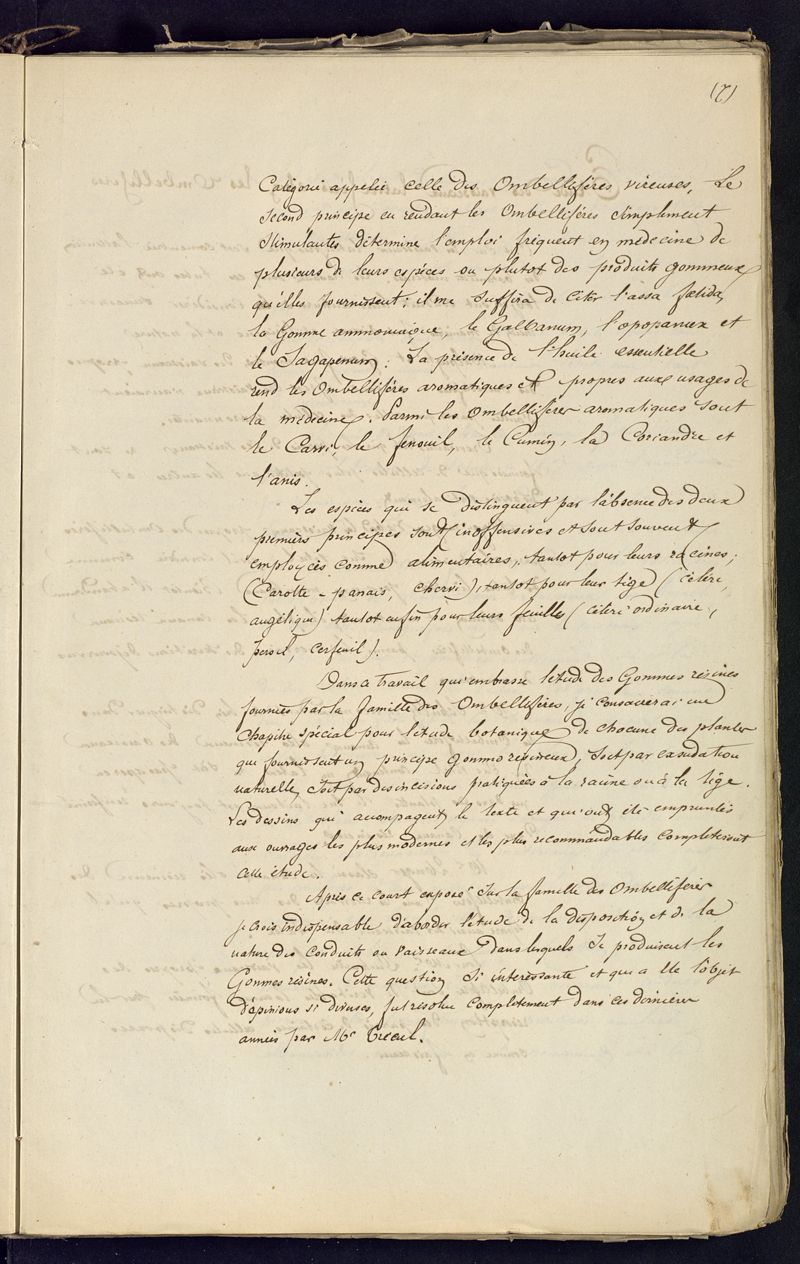 (7)
Catégorie appelée celle des Ombellifères vireuses. Le
second principe en rendant les Ombellifères simplement
stimulantes détermine l'emploi fréquent en médecine de
plusieurs de leurs espèces ou plutot des produits gommeux
qu'elles fournissent; il me suffira de citer l'assa fœtida,
la Gomme ammoniaque, le Galbanum, l'opopanax et
le Sagapenum. La présence de l'huile essentielle
rend les Ombellifères aromatiques et propres aux usages de
la médecine. Parmi les Ombellifères aromatiques sont
le Carvi, le fenouil, le Cumin, la Coriandre et
l'anis.
Les espèces qui se distinguent par l'absence des deux
premiers principes sont inoffensives et sont souvent
employées comme alimentaires, tantot pour leurs racines;
(Carotte - panais, chervi), tantot pour leur tige (céleri,
angélique) tantot enfin pour leurs feuilles (céleri ordinaire,
persil, cerfeuil).
Dans ce travail qui embrasse l'étude des Gommes résines
fournies par la famille des Ombellifères, je consacrerai un
Chapitre spécial pour l'étude botanique de chacune des plantes
qui fournissent un principe gommo résineux, soit par exsudation
naturelle, soit par des incisions pratiquées à la racine ou à la tige.
Les dessins qui accompagent le texte et qui ont été empruntés
aux ouvrages les plus modernes et les plus recommandables completeront
cette étude.
Après ce court exposé sur la famille des Ombellifères
je crois indispensable d'aborder l'étude de la disposition et de la
nature des conduits ou vaisseaux dans lesquels se produisent les
Gommes résines. Cette question si intéressante et qui a été l'objet
d'opinions si diverses, fut résolue completement dans ces dernières
années par Mr Trécul.